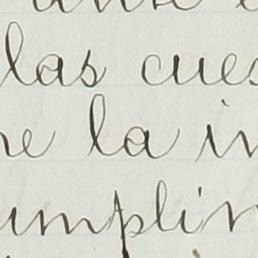 las cues
ne la in
umplim